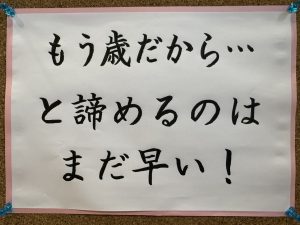 もう歳だから…
と諦めるのは
まだ早い！